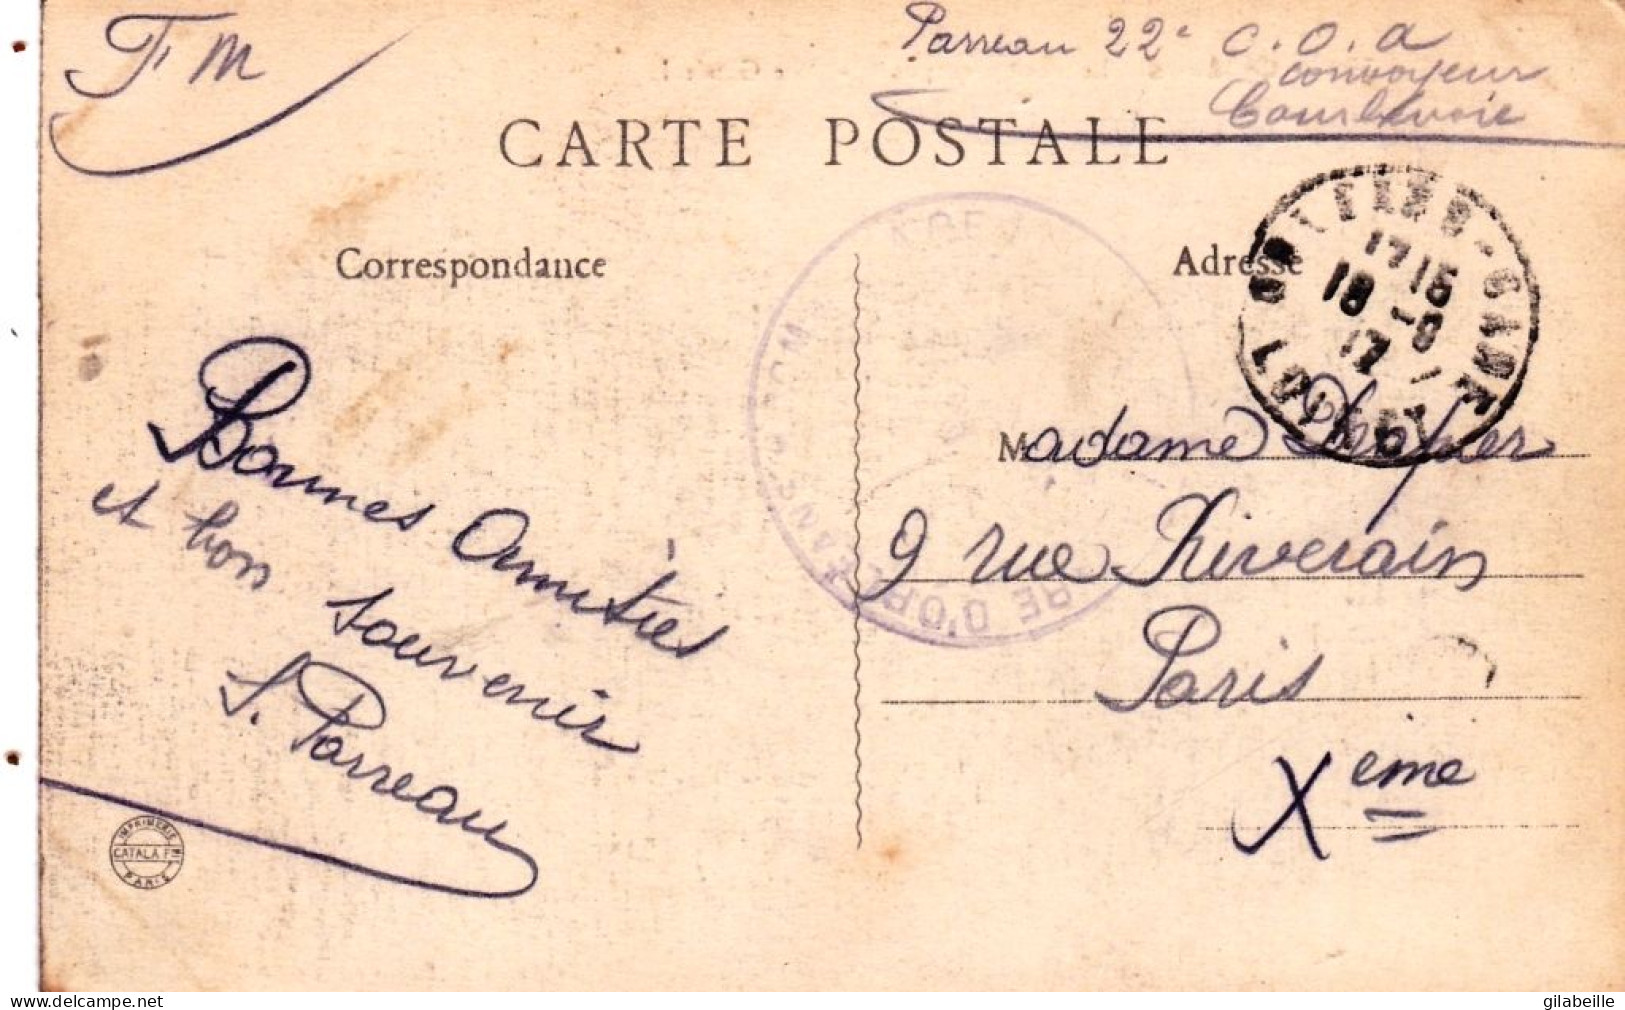 FM
Parreau 22e C.O.A
convoyeur
Courbevoie
CARTE POSTALE
Correspondance
Adresse
ORLEANS-GARE
17 15
18 -9
17
LOIRET
Bonnes Amitiés
et bon souvenir
S. Parreau
Madame
9 rue Riverain
Paris
Xème
IMPRIMERIE
CATALA Fres
PARIS
gilabeille